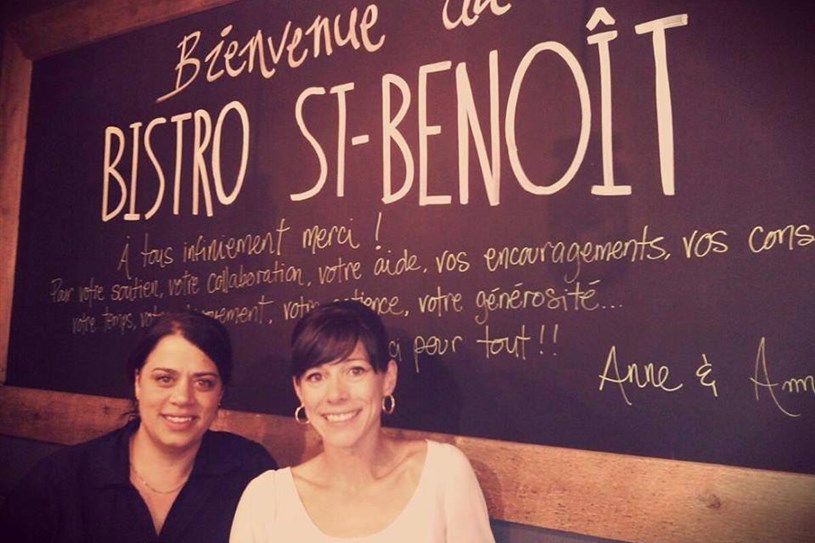 Bienvenue au
BISTRO ST-BENOÎT
À tous infiniement merci !
Pour votre soutien, votre collaboration, votre aide, vos encouragements, vos cons
votre temps, votre patience, votre générosité...
pour tout !!
Anne &